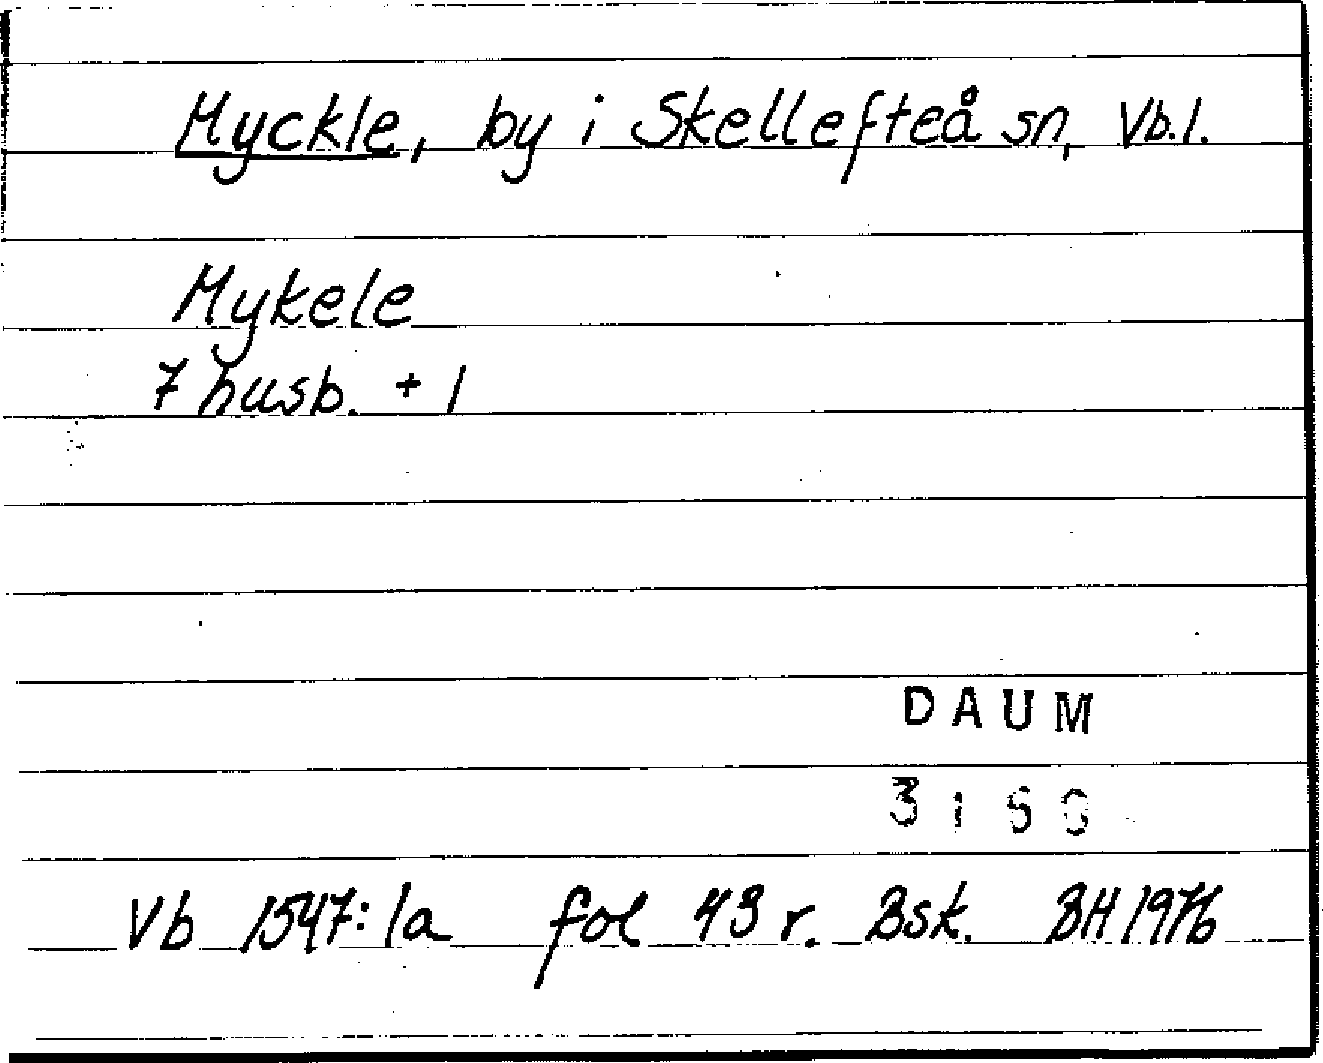 Myckle, by i Skellefteå sn, Vb.l.
Mykele
7 husb. + 1
DAUM
Vb 1547:1a fol 43 r. Bsk. BH 1976